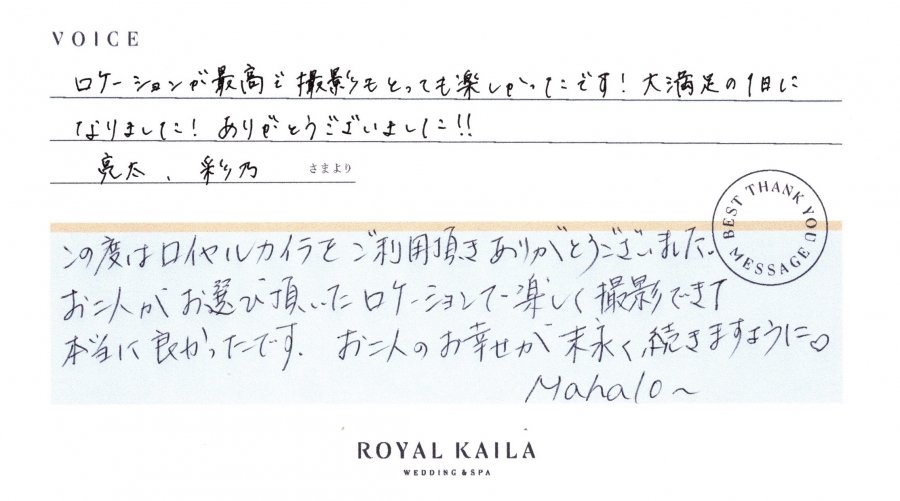 VOICE
ロケーションが最高で撮影もとっても楽しかったです！大満足の1日に
なりました！ありがとうございました!!
亮太、彩乃 さまより
BEST THANK YOU MESSAGE
この度はロイヤルカイラをご利用頂きありがとうございました。
お二人がお選び頂いたロケーションで楽しく撮影できて
本当に良かったです。お二人のお幸せが末永く続きますように♡
Mahalo～
ROYAL KAILA
WEDDING & SPA